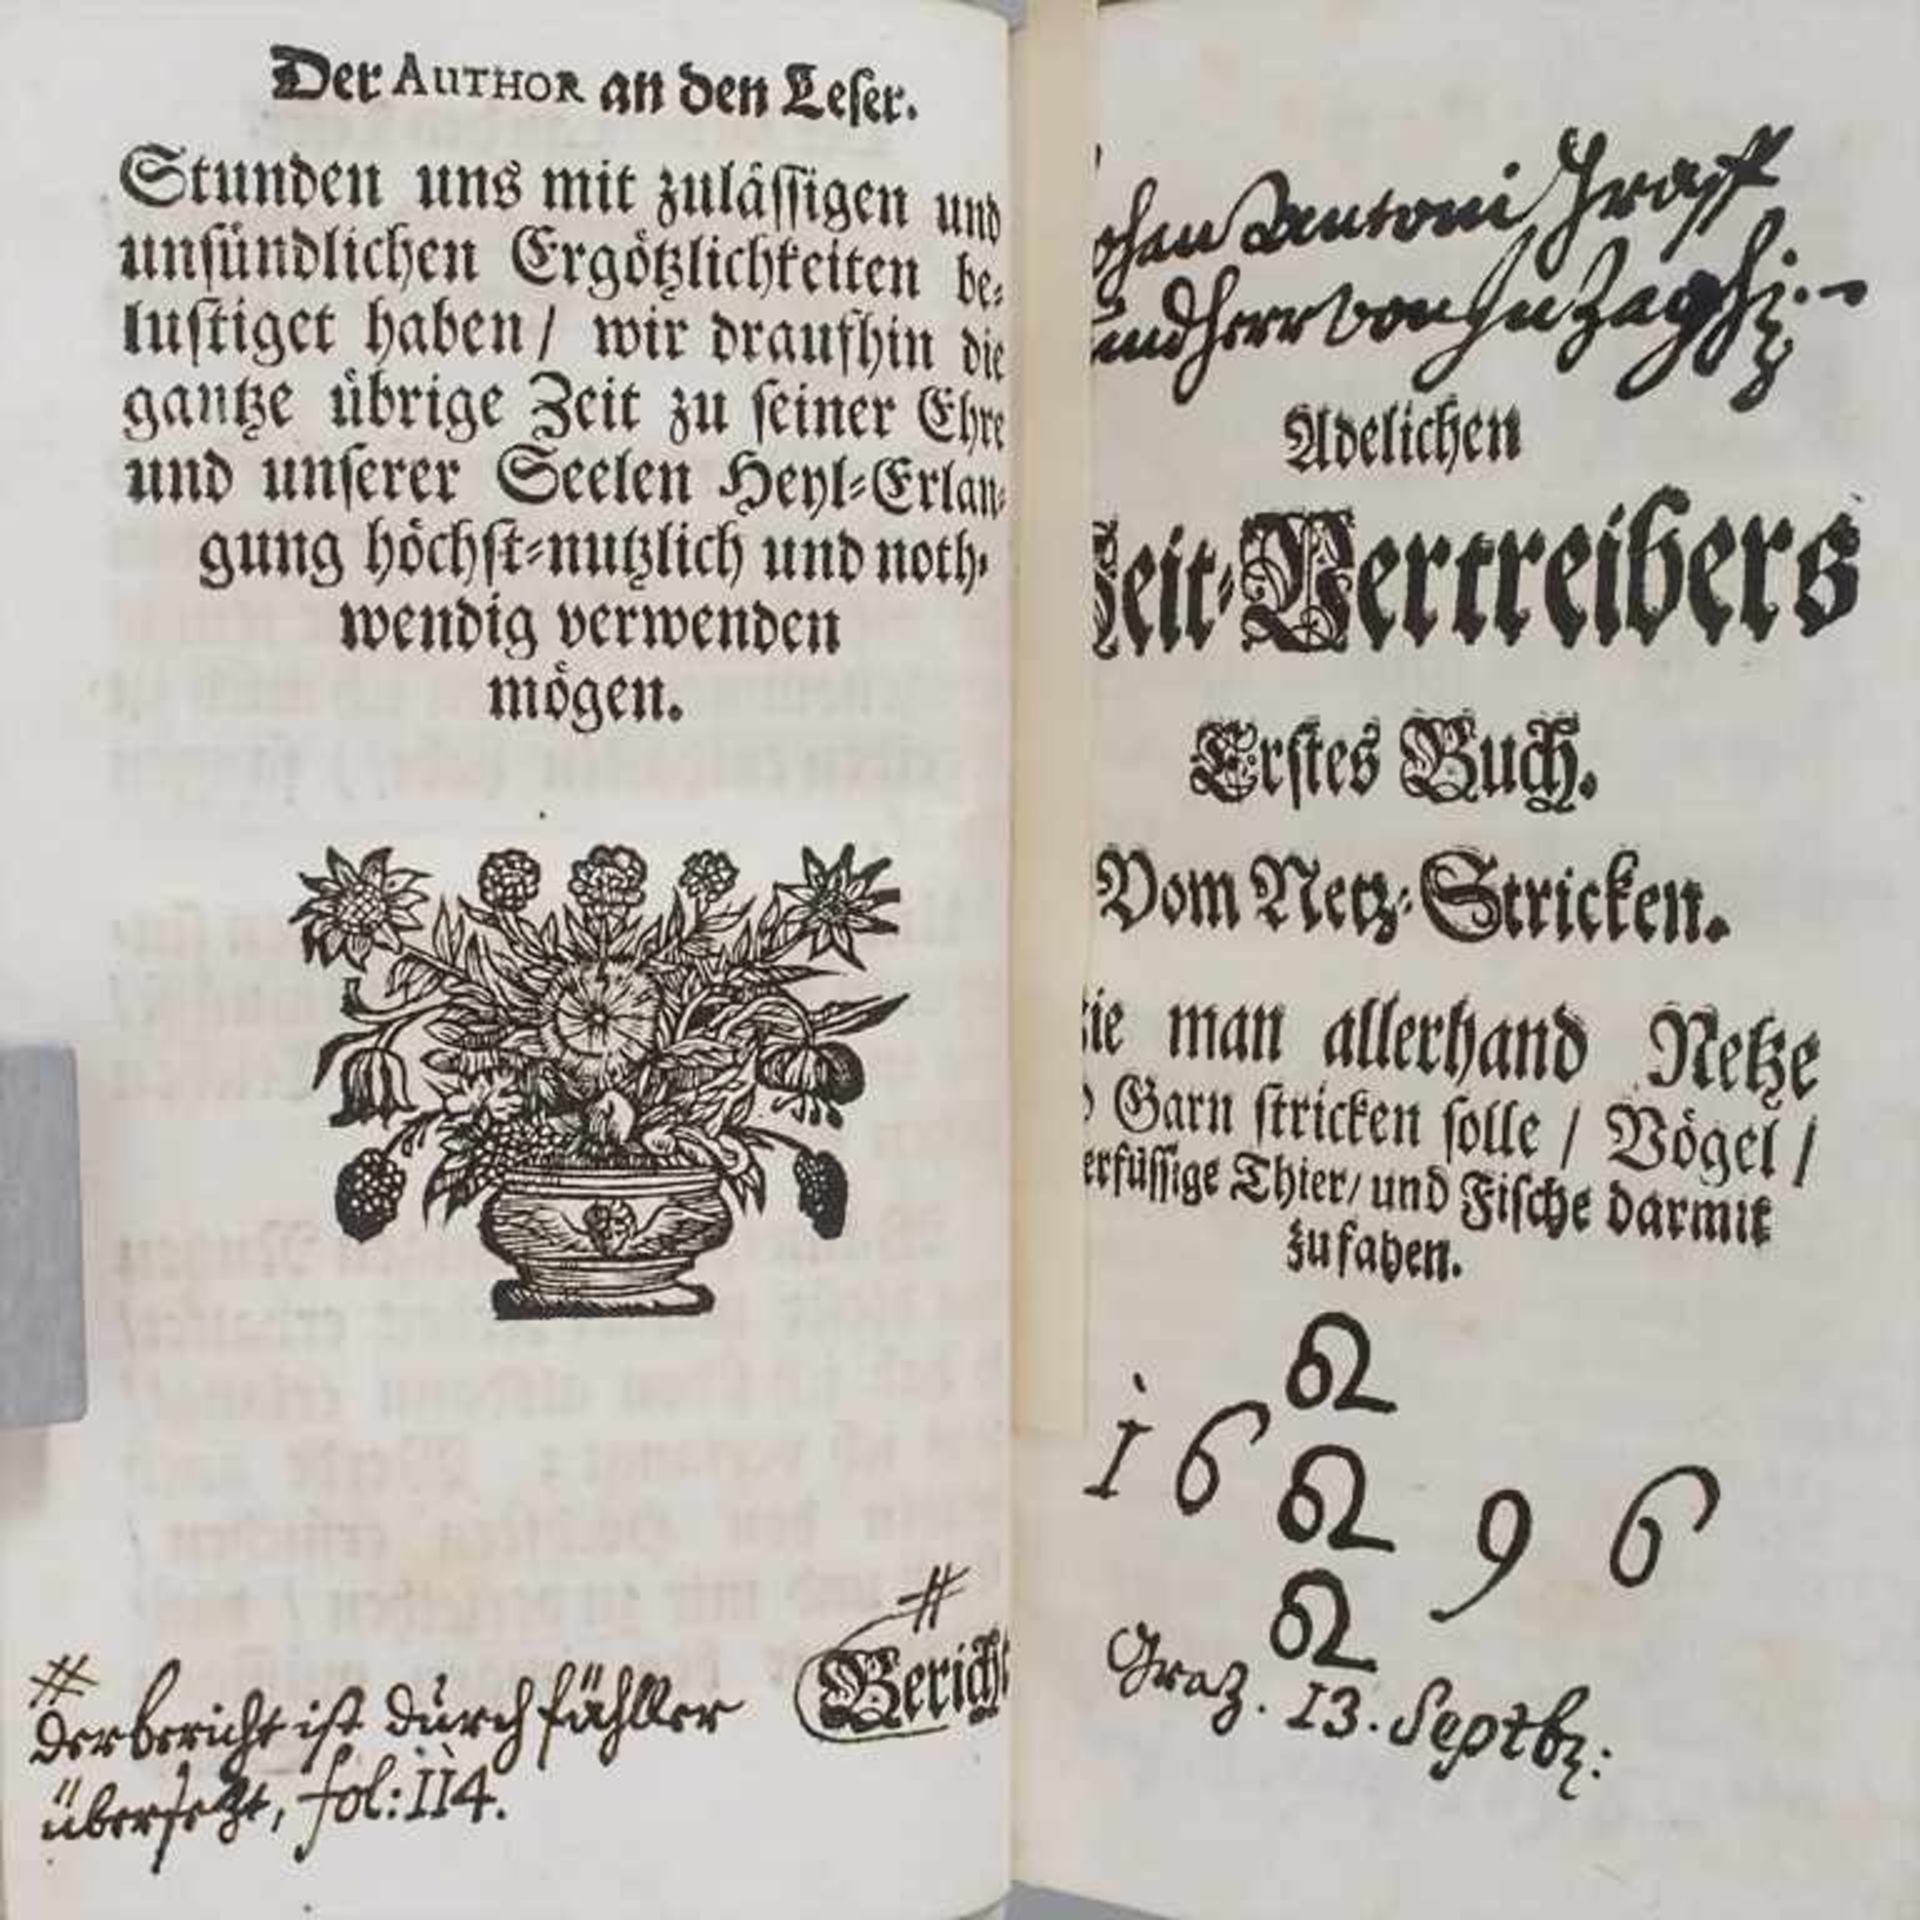 Der AUTHOR an den Leser.
Stunden uns mit zulässigen und
unsündlichen Ergötzlichkeiten be-
lustiget haben/ wir draufhin die
gantze übrige Zeit zu seiner Ehre
und unserer Seelen Heyl-Erlan-
gung höchst-nutzlich und noth-
wendig verwenden
mögen.
Bericht
#
#
der bericht ist durch fähller
übersetzt, fol: 114.
Antoni Graff
und Herr von
Adelichen
Zeit-Vertreibers
Erstes Buch.
Vom Netz-Stricken.
ie man allerhand Netze
Garn stricken solle / Vögel /
erfüssige Thier/ und Fische darmit
zu fahen.
1696
Graz. 13. Septbr: